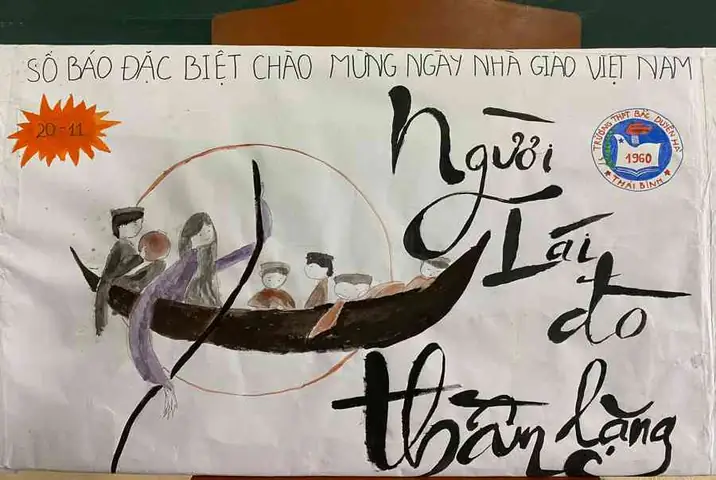 SỐ BÁO ĐẶC BIỆT CHÀO MỪNG NGÀY NHÀ GIÁO VIỆT NAM
20-11
Người
Lái
đò
thầm lặng
TRƯỜNG THPT BẮC DUYÊN HÀ
1960
THÁI BÌNH